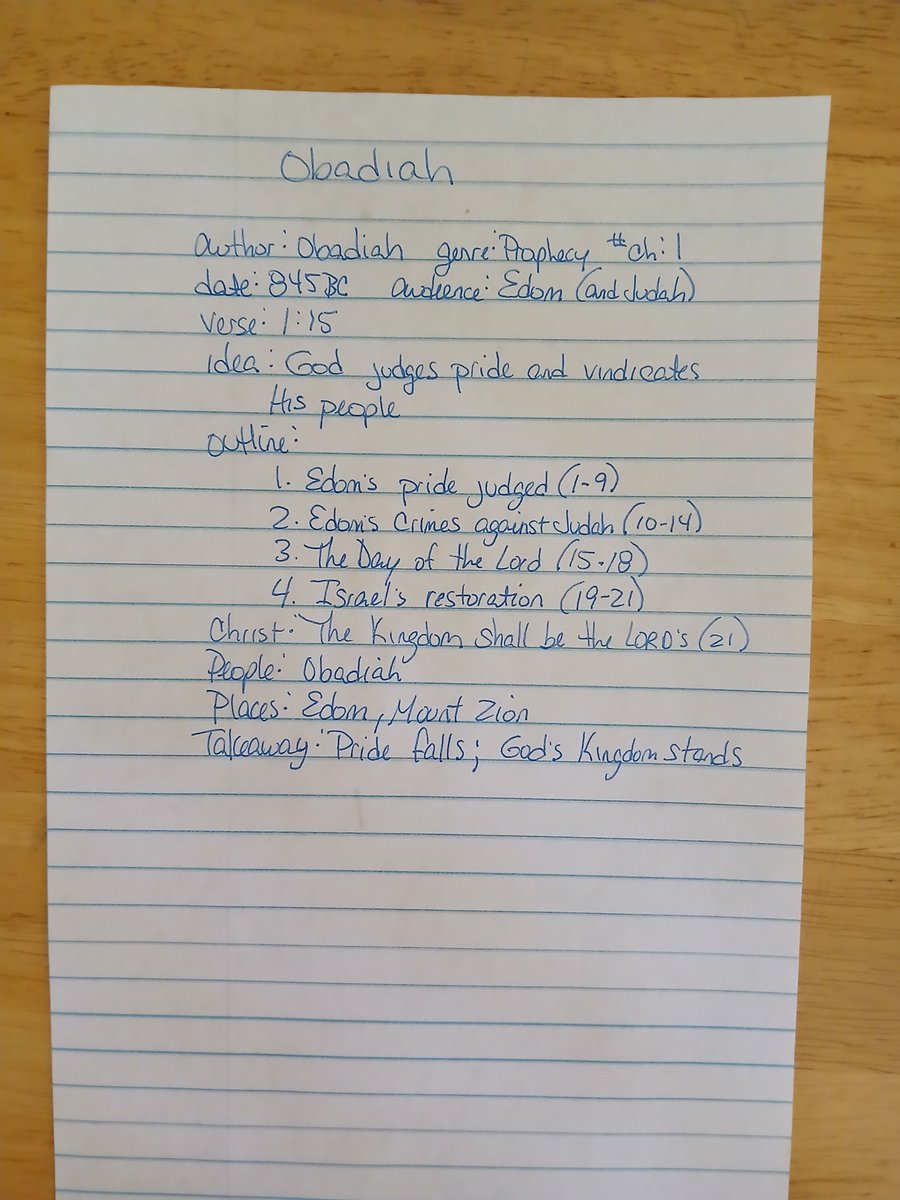 Obadiah
Author: Obadiah genre: Prophecy #ch: 1
date: 845 BC Audience: Edom (and Judah)
Verse: 1:15
Idea: God judges pride and vindicates
His people
Outline:
1. Edom's pride judged (1-9)
2. Edom's Crimes against Judah (10-14)
3. The Day of the Lord (15-18)
4. Israel's restoration (19-21)
Christ: "The Kingdom shall be the LORD's (21)
People: Obadiah
Places: Edom, Mount Zion
Takeaway: Pride falls; God's Kingdom stands